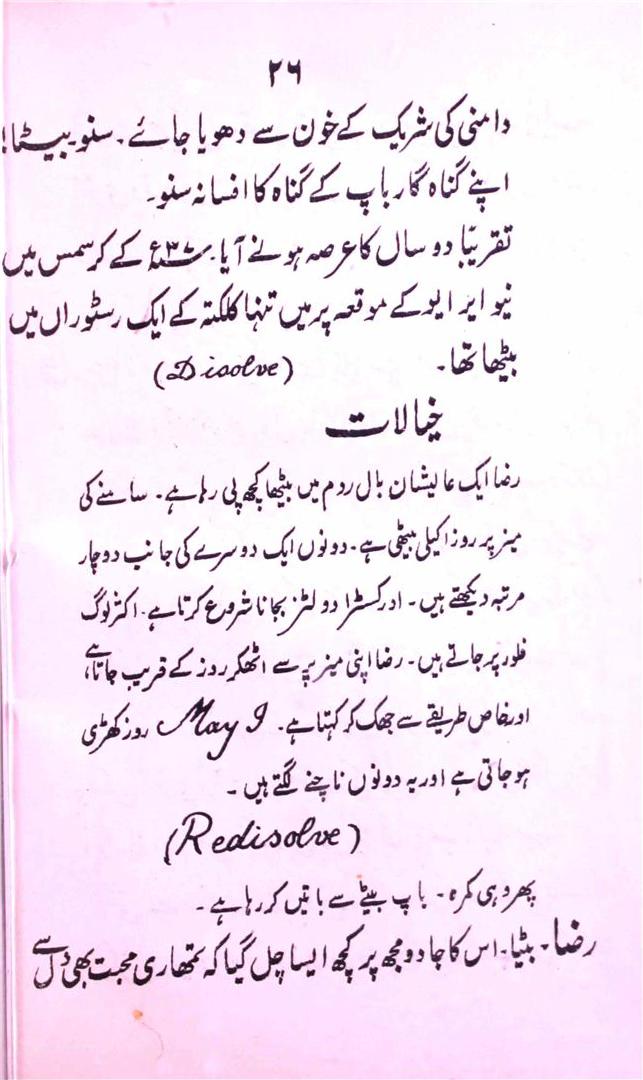 ۲۶
دامنی کی شریک کے خون سے دھویا جائے۔ سنو۔ بیٹا!
اپنے گناہ گار باپ کے گناہ کا افسانہ سنو۔
تقریبًا دو سال کا عرصہ ہونے آیا۔ ۳۷ء کے کرسمس میں
نیو ایر ایو کے موقعہ پر میں تنہا کلکتہ کے ایک رسٹوراں میں
بیٹھا تھا۔ (Disolve)
خیالات
رضا ایک عالیشان بال روم میں بیٹھا کچھ پی رہا ہے۔ سامنے کی
میز پر روز اکیلی بیٹھی ہے۔ دونوں ایک دوسرے کی جانب دو چار
مرتبہ دیکھتے ہیں۔ اورکسٹرا دولٹز بجانا شروع کرتا ہے۔ اکثر لوگ
فلور پر جاتے ہیں۔ رضا اپنی میز پر سے اٹھکر روز کے قریب جاتا ہے،
اور خاص طریقے سے جھک کر کہتا ہے۔ May I روز کھڑی
ہو جاتی ہے اور یہ دونوں ناچنے لگتے ہیں۔
(Redisolve)
پھر وہی کمرہ۔ باپ بیٹے سے باتیں کر رہا ہے۔
رضا۔ بیٹا۔ اس کا جادو مجھ پر کچھ ایسا چل گیا کہ تمھاری محبت بھی دل سے